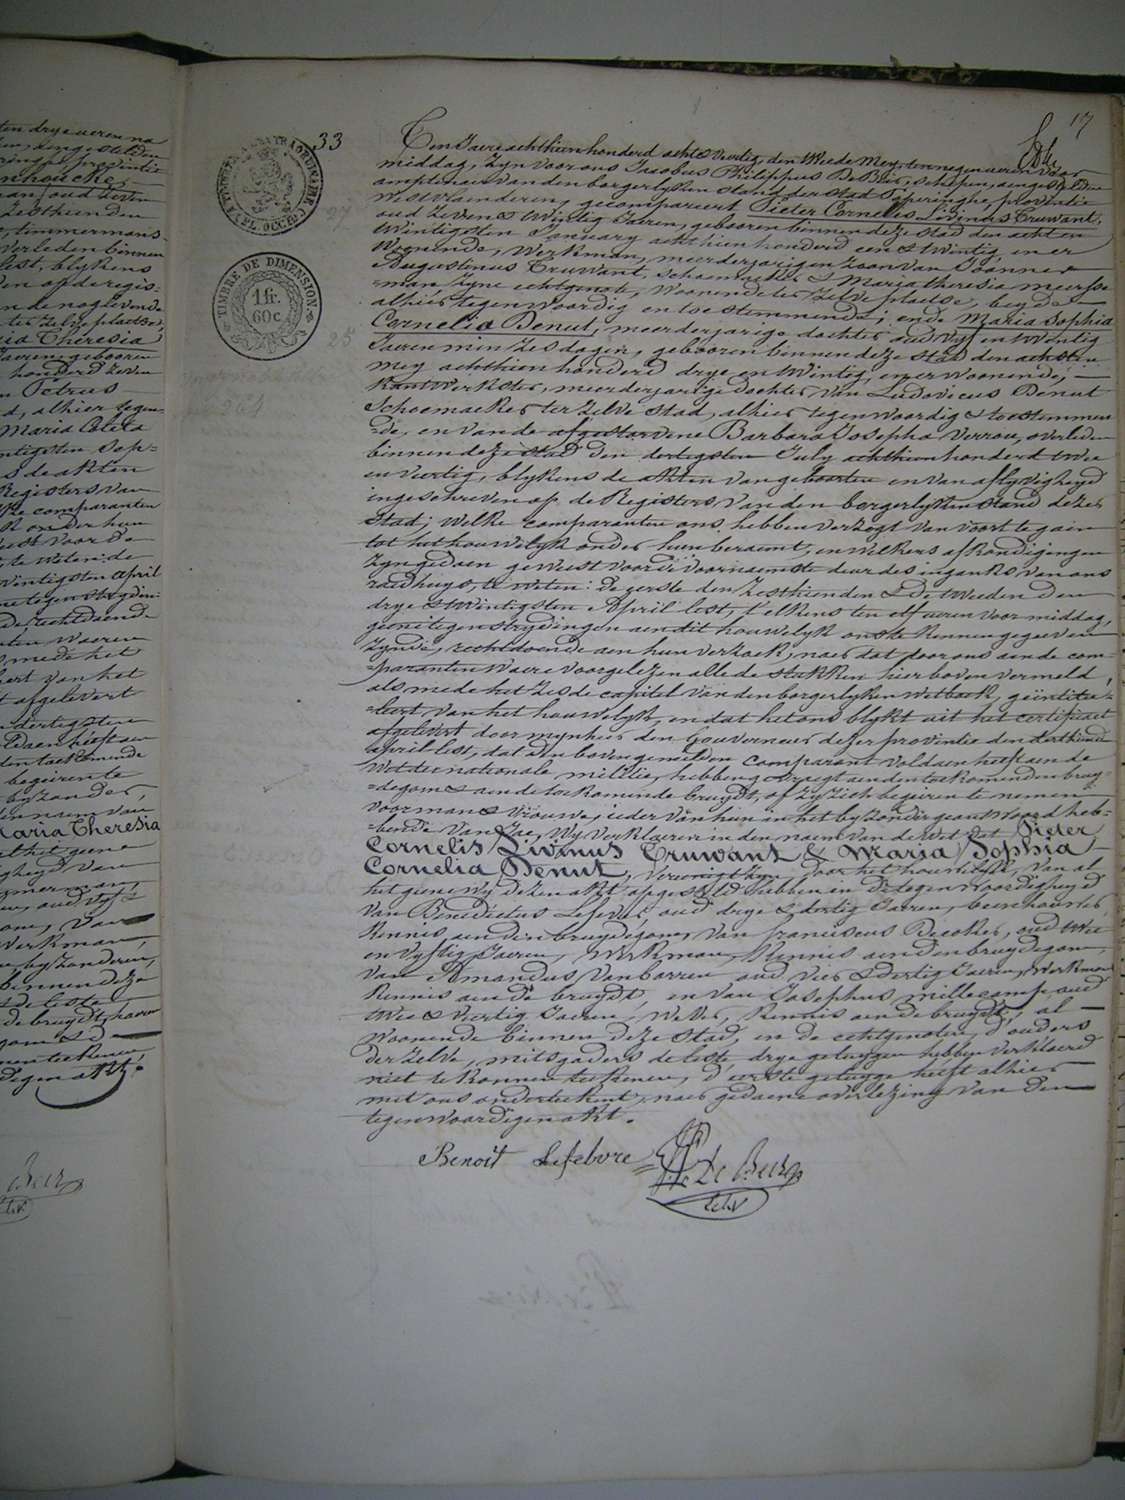 17
33
TIMBRE DE DIMENSION
1 fr.
60c
Ten Jaere achthien honderd acht & Veertig, den tweede Mey, ten negen ueren voor
middag, Zyn voor ons Jacobus Philippus De Beir, schepen, aengestelden
amptenaer van den borgerlyken stand der stad Poperinghe, provintie
Westvlaenderen, gecompareert Pieter Cornelis Livinus Cruwant,
oud Zeven & Twintig Jaeren, gebooren binnen deze stad den acht en
twintigsten January achthien honderd een & twintig, en er
Woonende, Werkman, meerderjarigen Zoon van Joannes
Augustinus Cruwant, schoenmaeker & Maria Theresia Meersse-
man, Zyne echtgenote, Woonende ter Zelve plaetse, beyde
alhier tegenwoordig en toestemmende; ende Maria Sophia
Cornelia Denut, meerderjarige dochter oud Vyf en twintig
Jaeren min Zes dagen, gebooren binnen deze stad den achsten
mey achthien honderd drye en twintig, en er woonende,
Kantwerkster, meerderjarige dochter, van Ludovicus Denut
Schoemaeker ter Zelve stad, alhier tegenwoordig & toestemmen
=de, en van de afgestorvene Barbara Josepha Verrou, overleden
binnen deze stad den dertigsten July achthien honderd twee
en veertig, blykens de akten van geboorten en van aflyvigheyd
ingeschreven op de Registers van den borgerlyken stand dezer
stad; Welke comparanten ons hebben verzogt van voort te gaen
tot het houwelyk onder hun beraemt, en welkers afkondigingen
Zyn gedaen geweest voor de voornaemste deur des ingangs van ons
raedhuys, te weten: de eerste den Zesthienden & de tweeden den
drye & twintigsten April lest, t'elkens ten elf ueren voor middag,
geene tegenstrydingen aen dit houwelyk ons te kennen gegeeven
Zynde, rechtdoende aen hun verzoek, naer dat door ons aen de com-
=paranten waere voorgelezen alle de stukken hier boven vermeld,
als mede het Zesde capitel van den borgerlyken wetboek, geïntitu-
=leert, van het houwelyk, en dat het ons blykt uit het certificaet
afgelevert door mynheer den Gouverneur dezer provintie den derthiende
april lest, dat den bovengemelden comparant voldaen heeft aen de
Wet der nationale militie, hebben gevraegt aen den toekomenden bruy-
=degom & aen de toekomende bruydt, of Zy Zich begeiren te nemen
voor man & vrouwe; ieder van hun in het byzonder geantwoord heb-
=bende van Jae, Wy verklaeren in den naem van de Wet dat Pieter
Cornelis Livinus Cruwant & Maria Sophia
Cornelia Denut, vereenigt Zyn door het houwelyk, van al
het gene wy dezen akt opgesteld hebben in de tegenwoordigheyd
van Benedictus Lefever, oud drye & dertig Jaeren, beenhouwer,
Kennis aen den bruydegom, van Franciscus Decoker, oud twee
en vyftig Jaeren, Werkman, Kennis aen den bruydegom,
van Amandus Vanbarren oud Vier & dertig Jaeren, Werkman
Kennis aen de bruydt, en van Josephus Millecamp, oud
twee & veertig Jaeren, Wever, Kennis aen de bruydt, al
woonende binnen deze stad, en de echtgenoten, d'ouders
der Zelve, mitsgaders de leste drye getuygen hebben verklaerd
niet te konnen teekenen, d'eerste getuyge heeft alhier
met ons onderteekent, naer gedaene overlezing van den
tegenwoordigen akt.
Benoit Lefebvre
De Beir